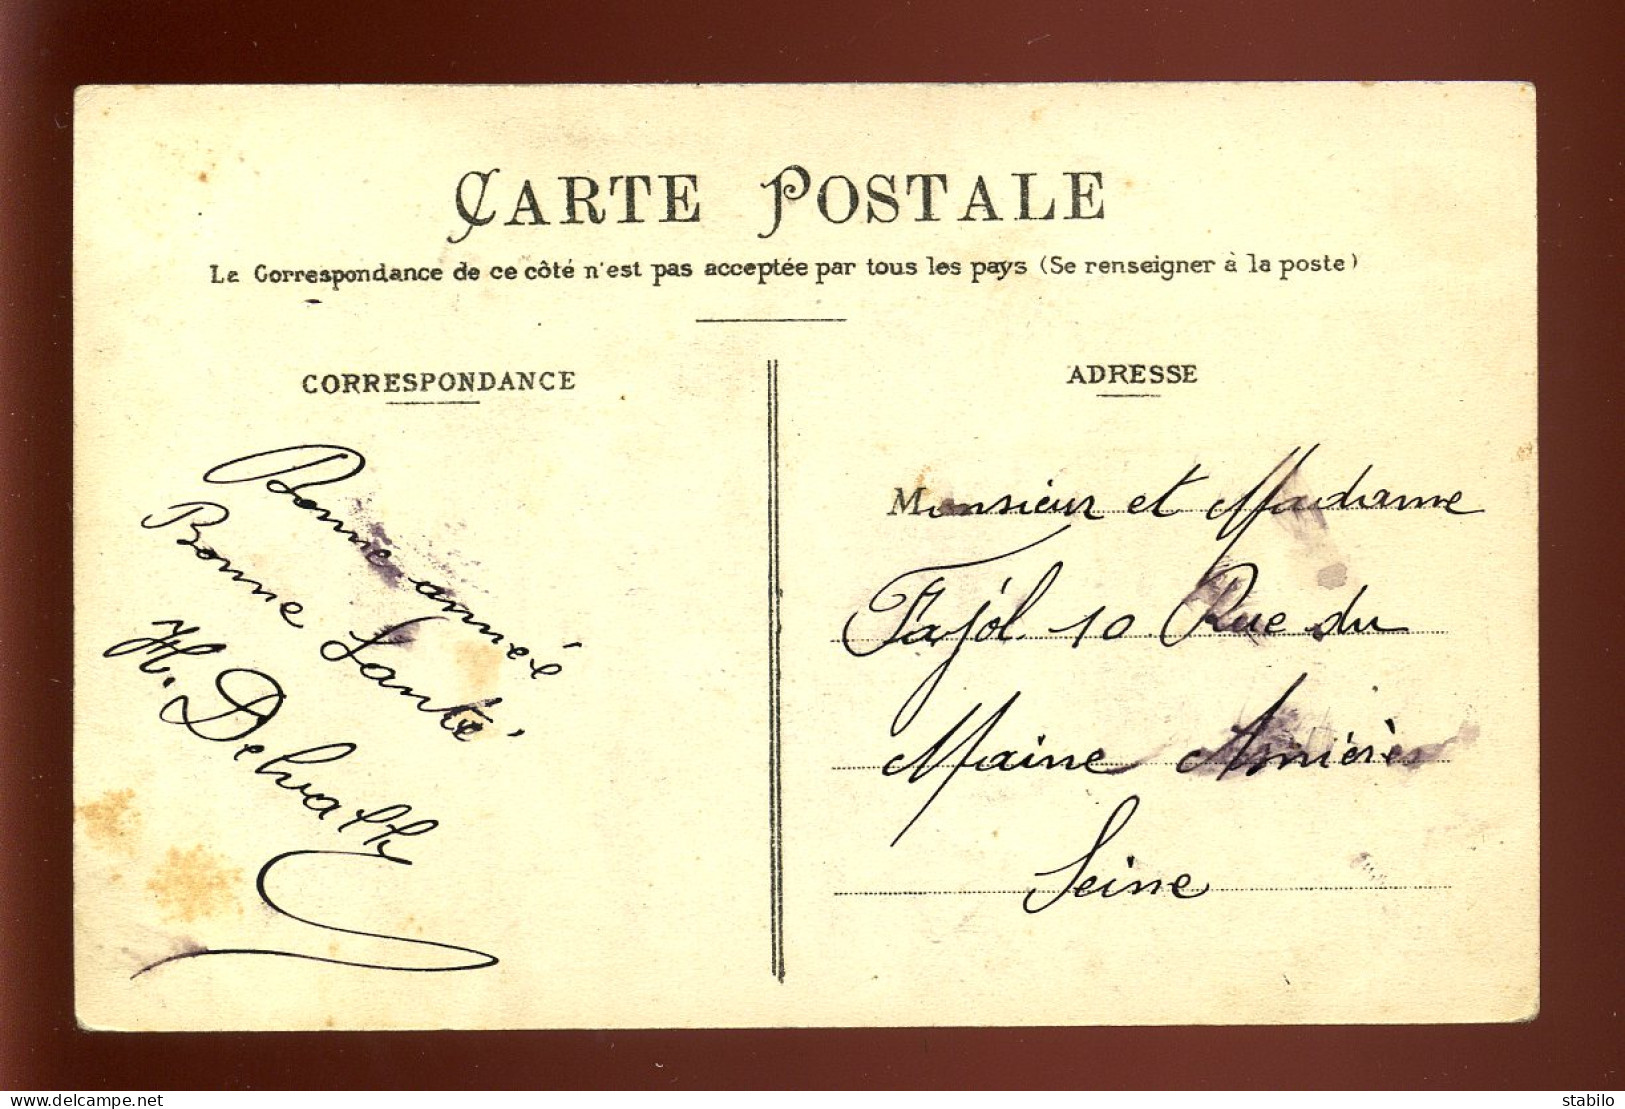 CARTE POSTALE
La Correspondance de ce côté n'est pas acceptée par tous les pays (Se renseigner à la poste)
CORRESPONDANCE
Bonne année
Bonne Santé
H. Delvalle
ADRESSE
Monsieur et Madame
Fajol 10 Rue du
Maine Asnières
Seine
delcampe.net
stabilo